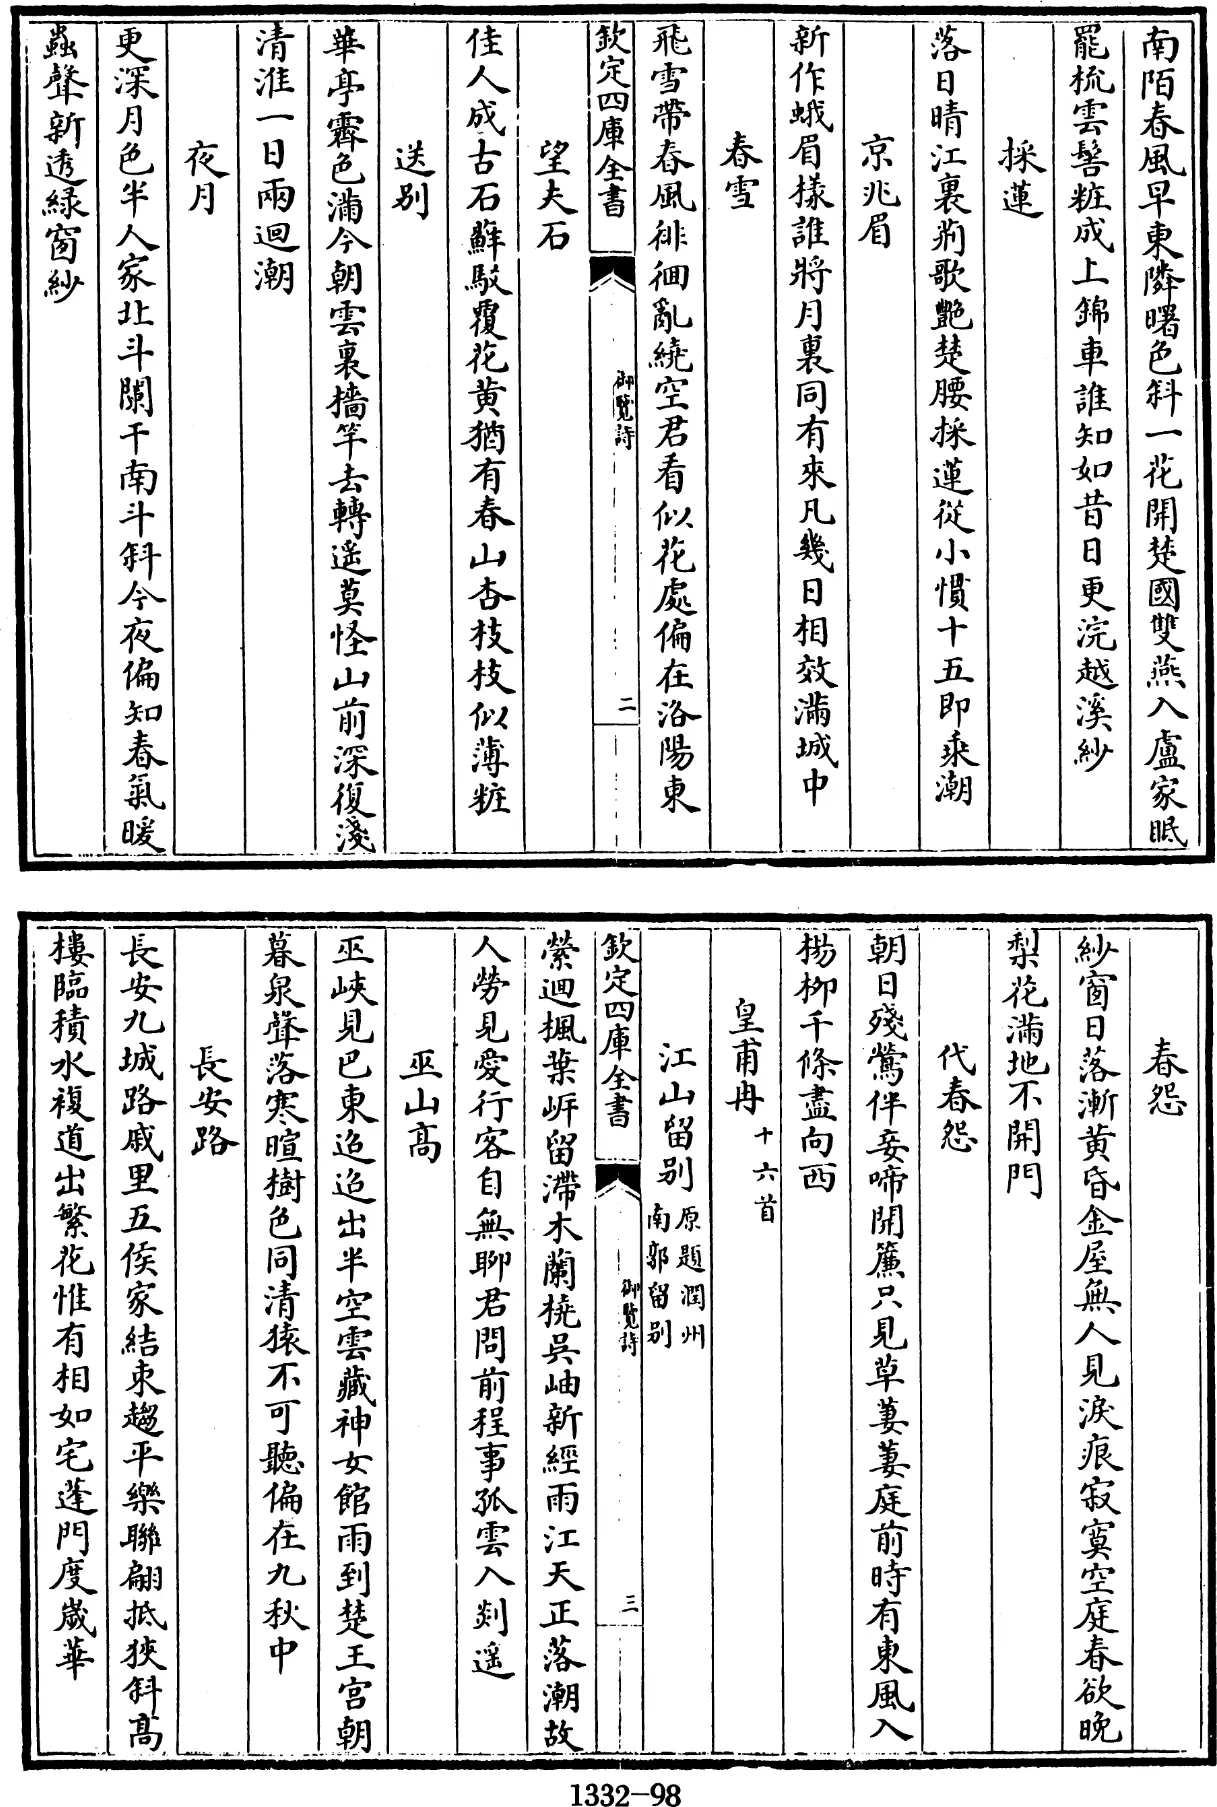 南陌春風早東隣曙色斜一花開楚國雙燕入盧家眠
罷梳雲髻粧成上錦車誰知如昔日更浣越溪紗
採蓮
落日晴江裏荊歌艷楚腰採蓮從小慣十五即乗潮
京兆眉
新作蛾眉樣誰將月裏同有來凡幾日相效滿城中
春雪
飛雪帶春風徘徊亂繞空君看似花處偏在洛陽東
欽定四庫全書
御覽詩
二
望夫石
佳人成古石蘚駁覆花黄猶有春山杏枝枝似薄粧
送别
華亭霽色滿今朝雲裏檣竿去轉遥莫怪山前深復淺
清淮一日兩迴潮
夜月
更深月色半人家北斗闌干南斗斜今夜偏知春氣暖
蟲聲新透緑窗紗
春怨
紗窗日落漸黄昏金屋無人見淚痕寂寞空庭春欲晚
梨花滿地不開門
代春怨
朝日殘鶯伴妾啼開簾只見草萋萋庭前時有東風入
楊柳千條盡向西
皇甫冉 十六首
江山留别 原題潤州南郭留别
縈迴楓葉岍留滯木蘭橈吳岫新經雨江天正落潮故
欽定四庫全書
御覽詩
三
人勞見愛行客自無聊君問前程事孤雲入剡遥
巫山高
巫峽見巴東迢迢出半空雲藏神女館雨到楚王宫朝
暮泉聲落寒暄樹色同清猿不可聽偏在九秋中
長安路
長安九城路戚里五侯家結束趨平樂聯翩抵狹斜高
樓臨積水複道出繁花惟有相如宅蓬門度歲華
1332-98